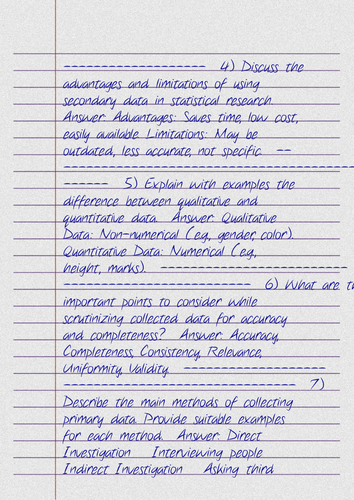 -------------------- 4) Discuss the
advantages and limitations of using
secondary data in statistical research.
Answer: Advantages: Saves time, low cost,
easily available. Limitations: May be
outdated, less accurate, not specific. --
-----------------------------------------
------ 5) Explain with examples the
difference between qualitative and
quantitative data. Answer: Qualitative
Data: Non-numerical (e.g., gender, color).
Quantitative Data: Numerical (e.g.,
height, marks). --------------------------
-------------------------- 6) What are th
important points to consider while
scrutinizing collected data for accuracy
and completeness? Answer: Accuracy,
Completeness, Consistency, Relevance,
Uniformity, Validity. --------------------
--------------------------------- 7)
Describe the main methods of collecting
primary data. Provide suitable examples
for each method. Answer: Direct
Investigation Interviewing people
Indirect Investigation Asking third